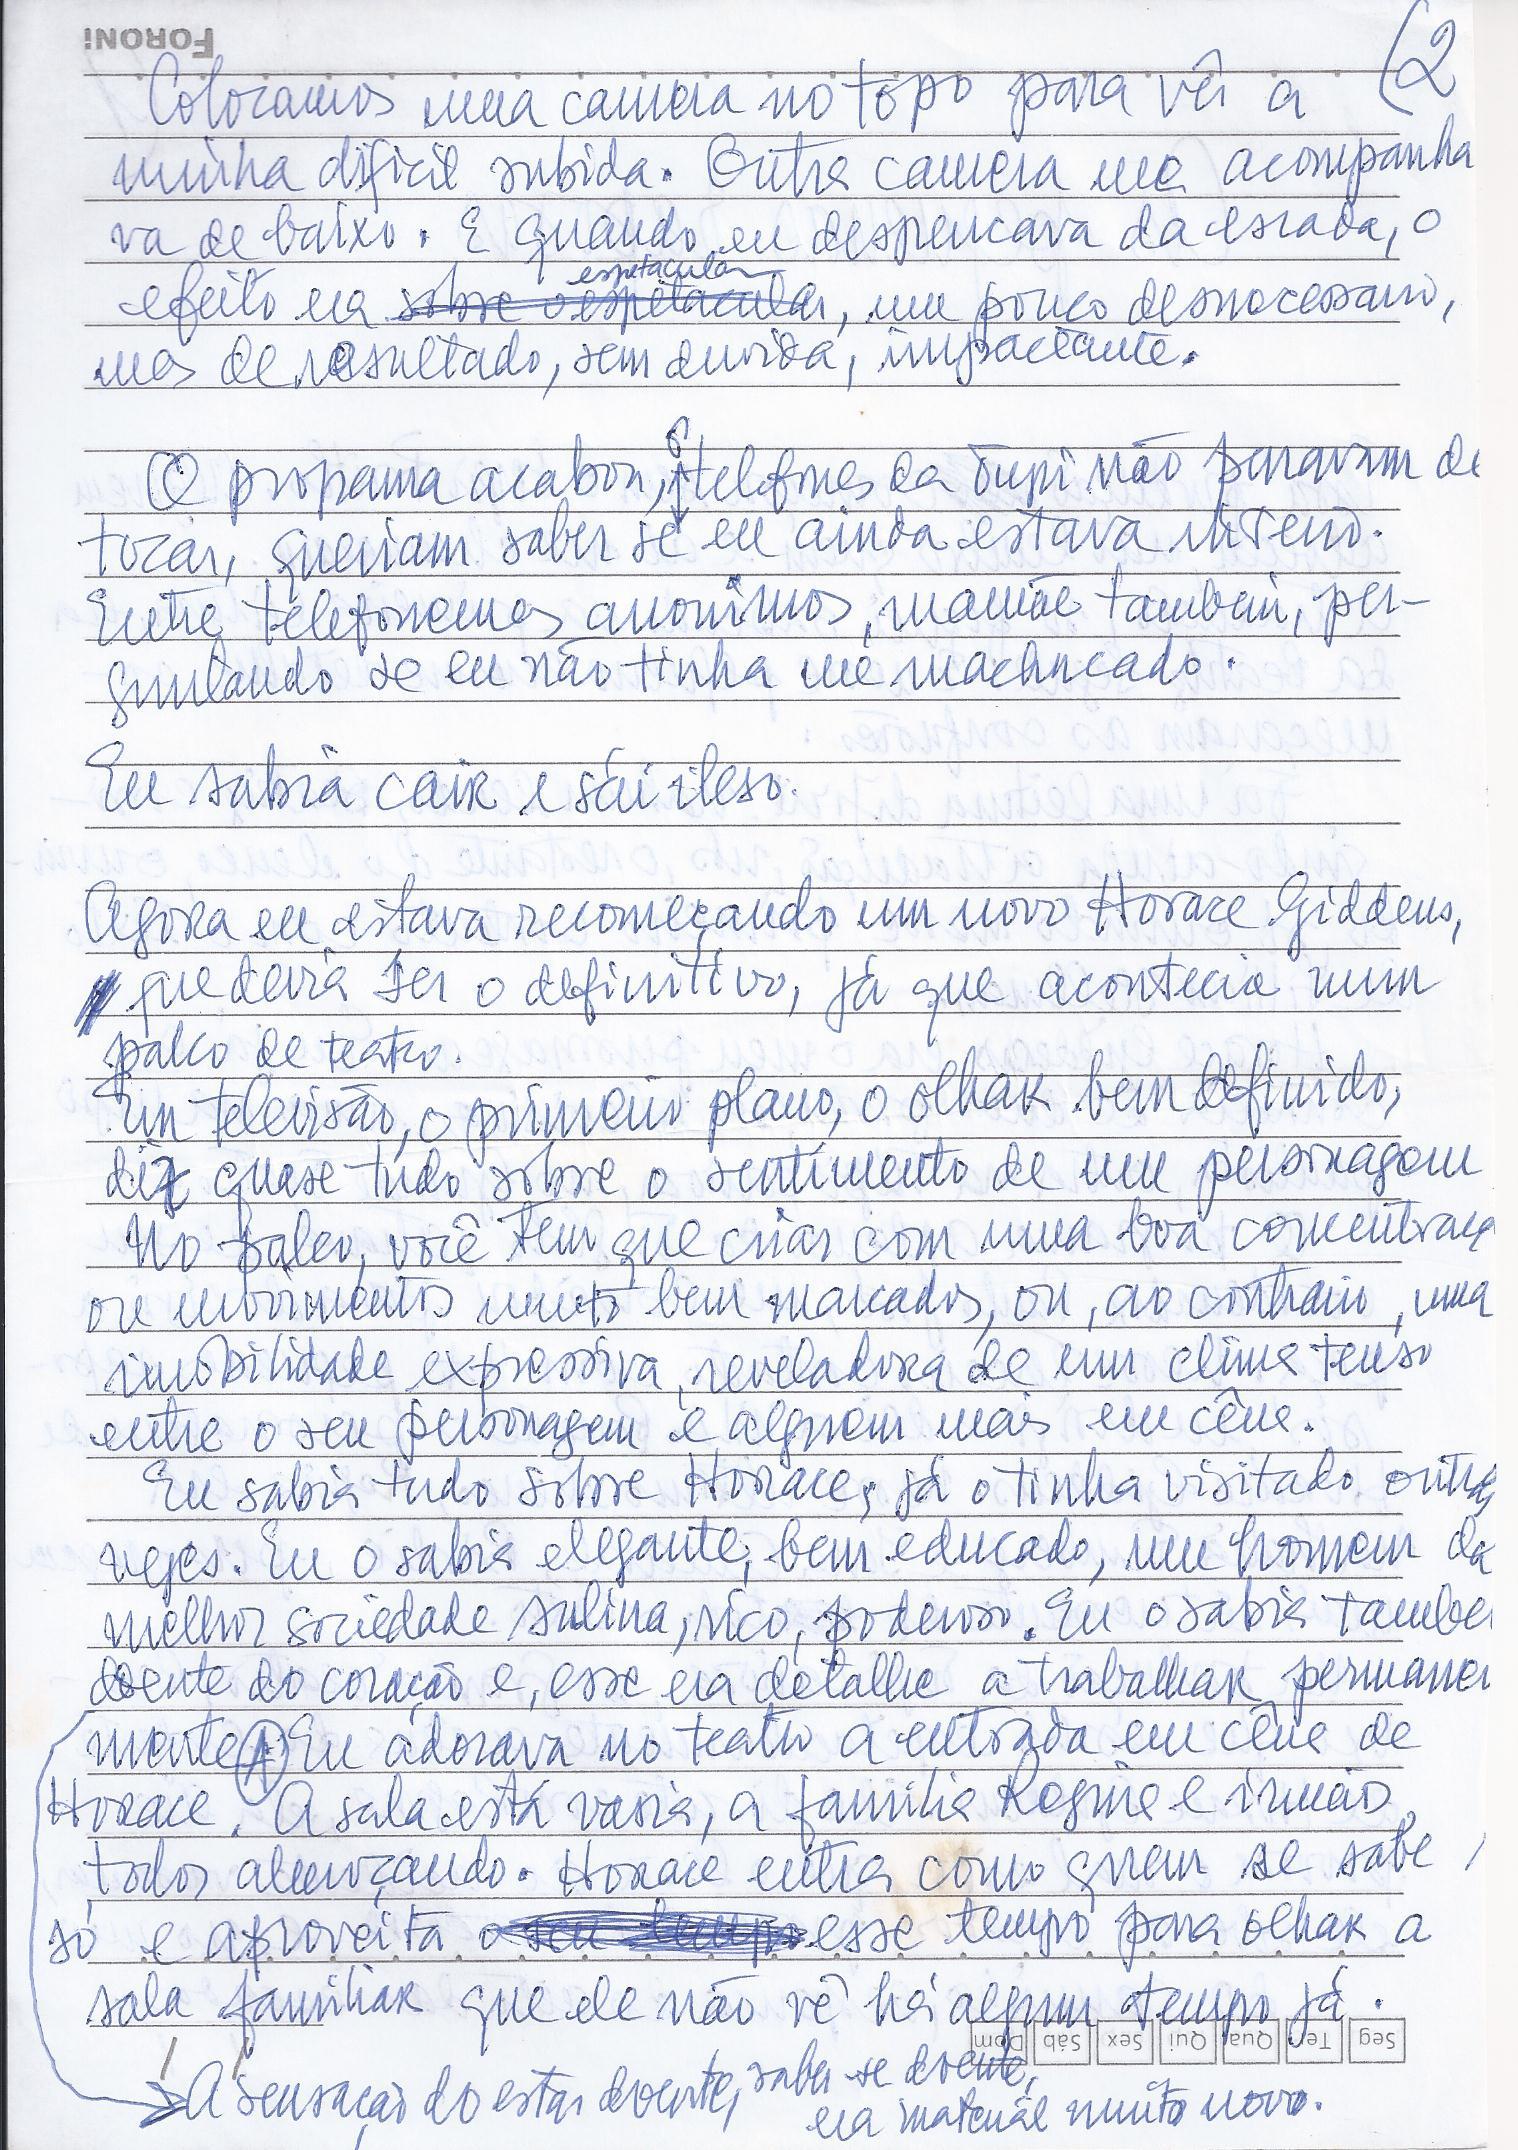 FORONI
(2
Colocamos uma camera no topo para vêr a
minha dificil subida. Outra camera me acompanha
va de baixo. E quando eu despencava da escada, o
espetacular
efeito era sobre o espetacular, um pouco desnecessario,
mas de resultado, sem duvida, impactante.
O programa acabou, os telefones da Tupi não paravam de
tocar, queriam saber se eu ainda estava inteiro.
Entre telefonemas anonimos, mamãe tambem, per-
guntando se eu não tinha me machucado.
Eu sabia cair e sái ileso.
Agora eu estava recomeçando um novo Horace Giddens,
que devia ser o definitivo, já que acontecia num
palco de teatro.
Em televisão, o primeiro plano, o olhar bem definido,
diz quase tudo sobre o sentimento de um personagem
No palco, você tem que criar com uma boa concentraçã
ou movimentos muito bem marcados, ou, ao contrario, uma
imobilidade expressiva, reveladora de um clima tenso
entre o seu personagem e alguem mais em cêna.
Eu sabia tudo sobre Horace, já o tinha visitado outras
vezes. Eu o sabia elegante, bem educado, um homem da
melhor sociedade sulina, rico, poderoso. Eu o sabia tambe
doente do coração e, esse era detalhe a trabalhar permanen
mente (A) Eu adorava no teatro a entrada em cêna de
Horace. A sala está vasia, a familia Regina e irmão
todos almoçando. Horace entra como quem se sabe
só e aproveita o seu tempo esse tempo para olhar a
sala familiar que ele não vê há algum tempo já.
Seg Ter Qua Qui Sex Sáb Dom
A sensação do estar doente, saber-se doente,
era material muito novo.